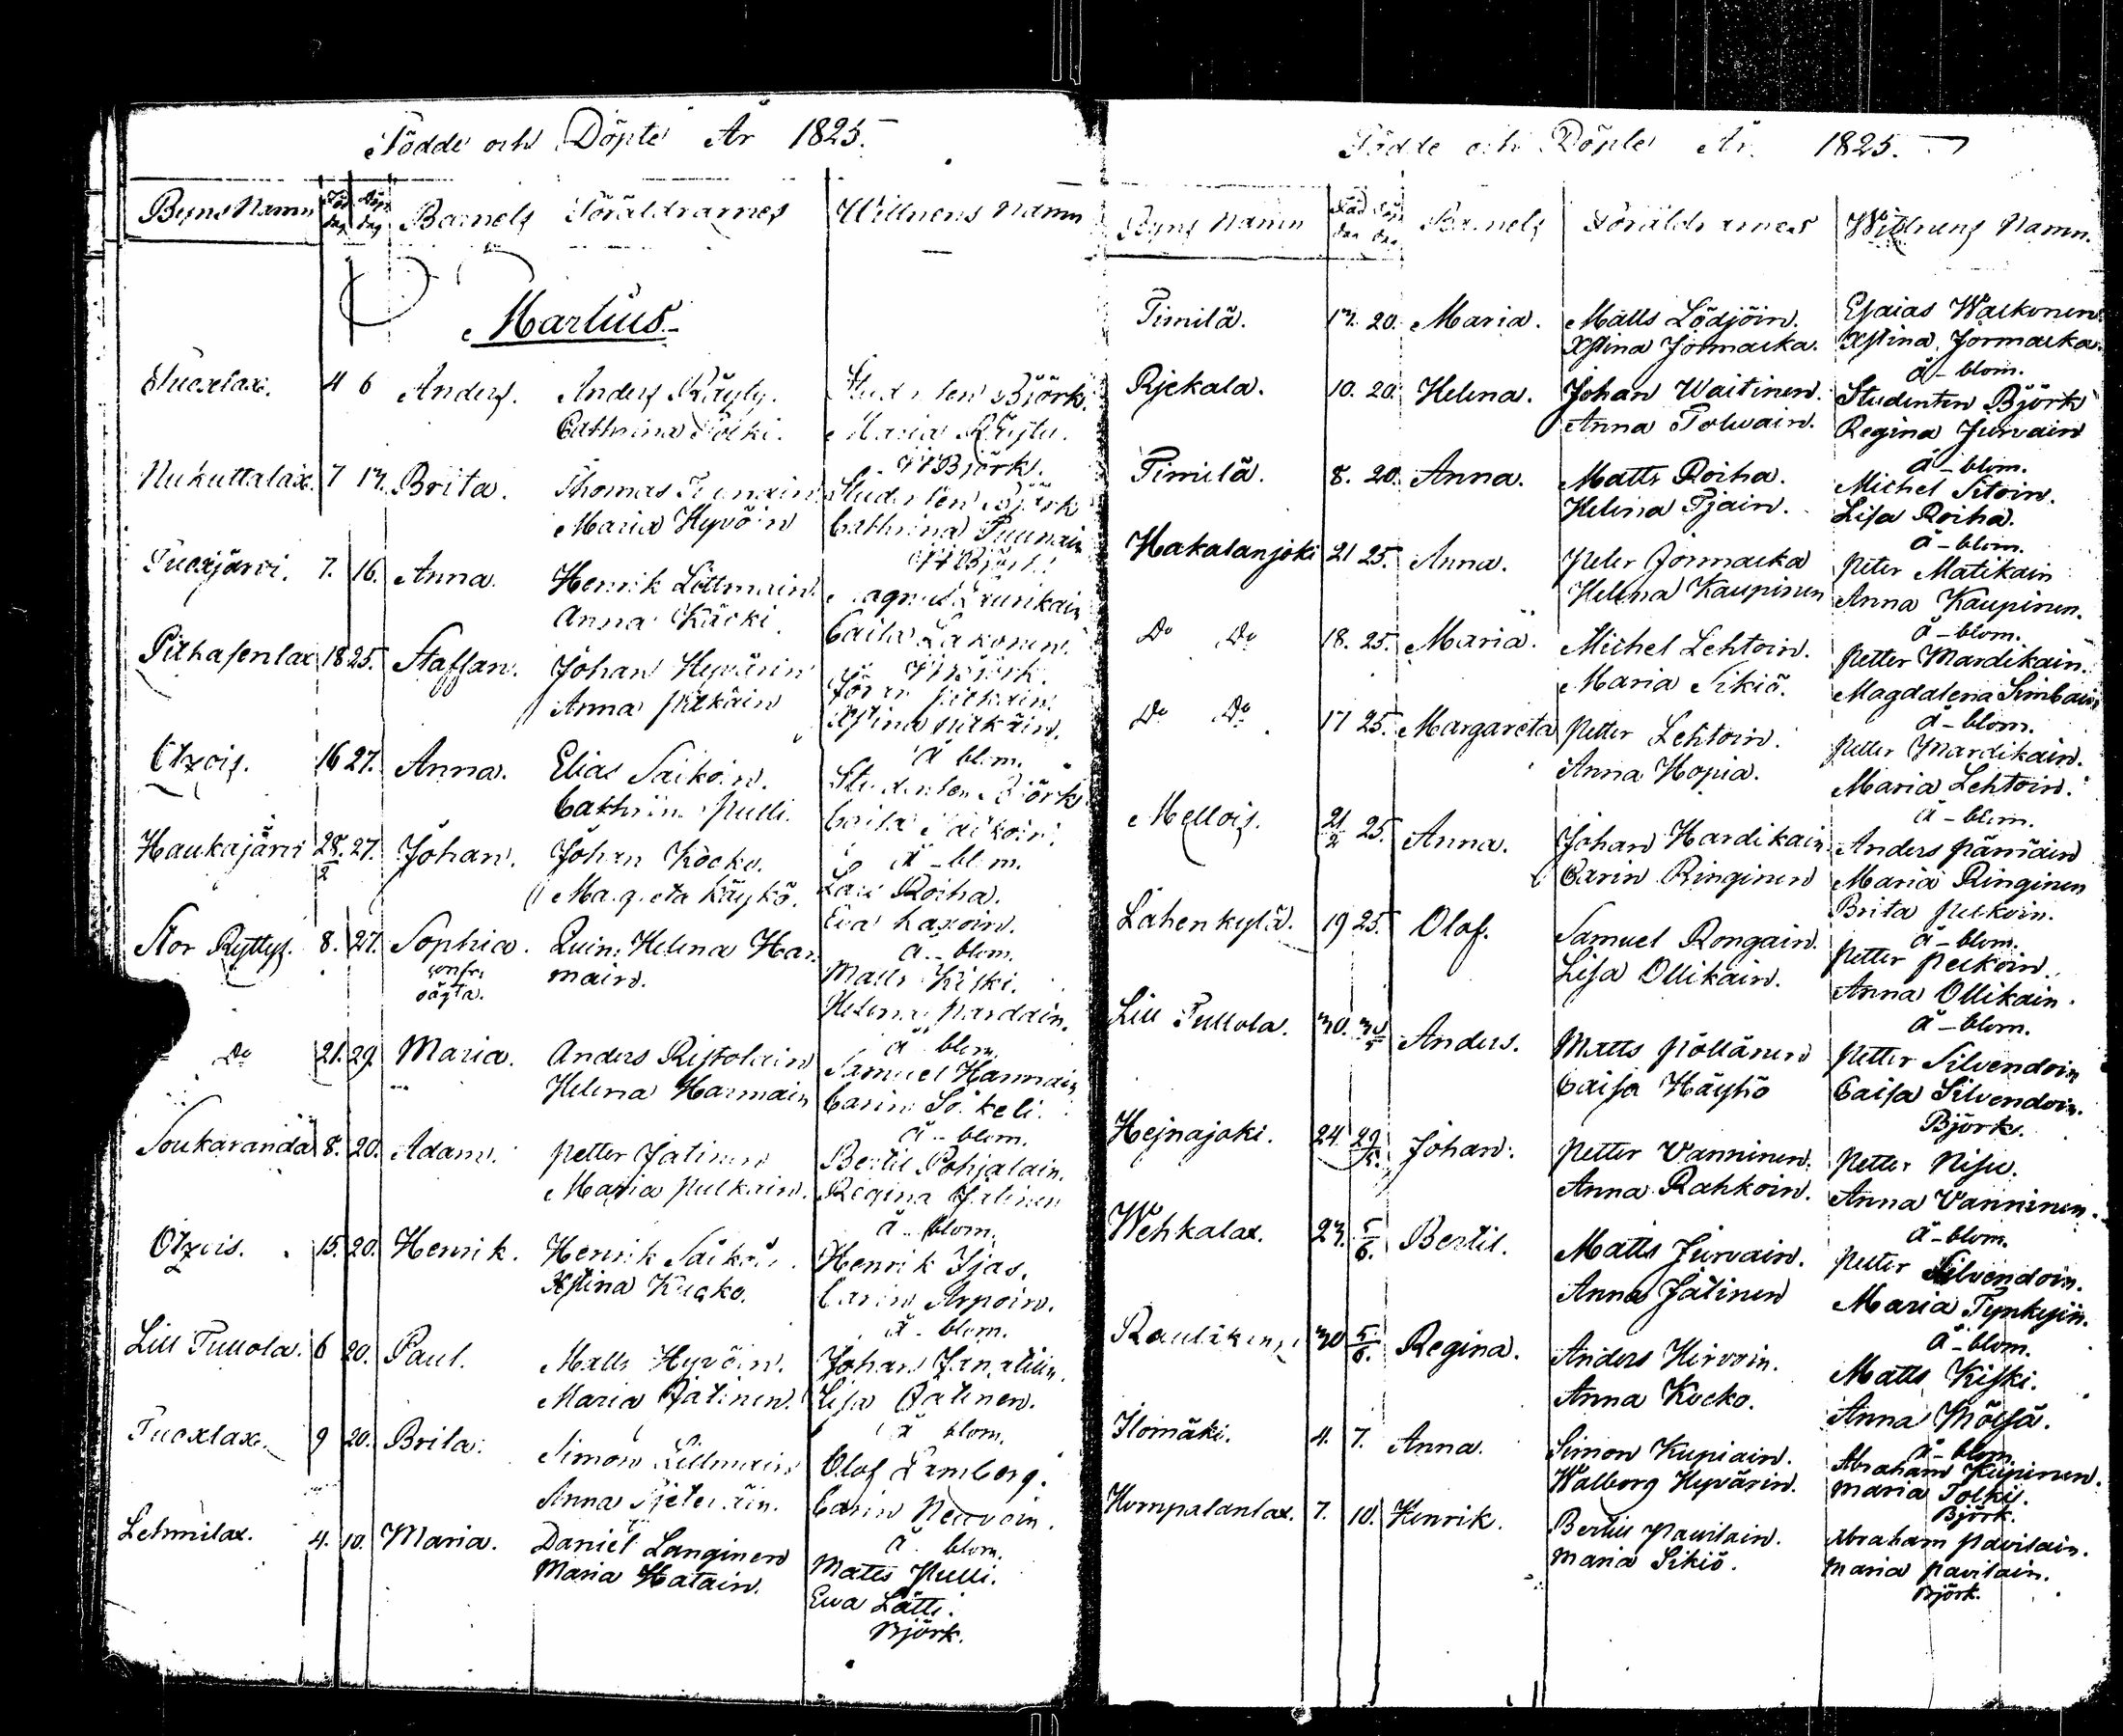 Födde och Döpte År 1825.
Byns Namn Föd dag Döp dag Barnets Föräldrarnes Wittnens Namn
Martius
Tuoxlax. 4 6 Anders. Anders Räyty. Studenten Björk.
Cathrina Tolki. Maria Räyty.
Björk.
Nukuttalax. 7 13. Brita. Thomas Studenten Björk
Maria Hyvöin Cathrina Puunain
Björk.
Tuoxjärvi. 7. 16. Anna. Henrik Littmain. Magnus
Anna Käcki. Caisa Lakonen.
Björk.
Pithasenlax 18 25. Staffan. Johan Hyvärin Jöran Pitkäin.
Anna Pitkäin Xstina Pitkäin.
ä blom.
Otzois. 16 27. Anna. Elias Saikoin. Studenten Björk
Cathrina Pulli. Caisa Saikoin.
ä-blom.
Haukajärvi 28/2. 27. Johan. Johan Kocko. Lars Roiha.
Margreta Käyhö. Eva Laxoin.
ä-blom.
Stor Ryttys. 8. 27. Sophia. Quins. Helena Har Matts Kiski.
oägta. main. Helena Pardain.
ä blom.
Do 21. 29. Maria. Anders Ristolain Samuel Harmain
Helena Harmain Carin
ä-blom.
Soukaranda 8. 20. Adam. Petter Jatinen Bertil Pohjalain.
Maria Pulkain. Regina Jatinen
ä blom.
Otzois. 15. 20. Henrik. Henrik Saikoi. Henrik Ijas.
Xstina Kucko. Carin Arpoin.
ä-blom.
Lill Tullola. 6 20. Paul. Matts Hyvöin. Johan
Maria Jatinen. Lisa Jatinen.
ä blom.
Tuoxlax. 9 20. Brita. Simon Littmain Olof Lemberg.
Anna Carin Nevvoin.
ä blom.
Lehmilax. 4. 10. Maria. Daniel Langinen Matts Pulli.
Maria Hatain. Ewa Lätti.
Björk.
Födde och Döpte År 1825.
Byns Namn Föd dag Döp dag Barnets Föräldrarnes Wittnens Namn.
Timilä. 13. 20. Maria. Matts Lödjöin. Esaias Walkonen
Xstina Jormacka. Xstina Jormacka.
ä-blom.
Rjekala. 10. 20. Helena. Johan Waitinen. Studenten Björk
Anna Tolvain. Regina Jurvain
ä-blom.
Timilä. 8. 20. Anna. Matts Roiha. Michel Sitoin.
Helena Tjain. Lisa Roiha.
ä-blom.
Hakalanjoki 21 25. Anna. Peter Jormacka Peter Matikain
Helena Kaupinen Anna Kaupinen.
ä-blom.
Do Do 18. 25. Maria. Michel Lehtoin. Petter Mardikain.
Maria Sikiö. Magdalena Simbain
ä-blom.
Do Do 17 25. Margareta Petter Lehtoin. Petter Mardikain.
Anna Hopia. Maria Lehtoin.
ä-blom.
Mellois. 21/2 25. Anna. Johan Hardikain Anders Pärnäin
Carin Ringinen Maria Ringinen
Brita Pelkoin.
ä-blom.
Lahenkylä. 19 25. Olof. Samuel Rongain. Petter Pelkoin.
Lisa Ollikain. Anna Ollikain.
ä-blom.
Lill Tullola. 30. 30/5 Anders. Matts Pöllänen Petter Silvendoin
Caisa Häyhö Caisa Silvendoin.
Björk.
Hejnajoki. 24. 29/5. Johan. Petter Vanninen. Petter Nisu.
Anna Rahkoin. Anna Vanninen.
ä-blom.
Wehkalax. 23. 5/6. Bertil. Matts Jurvain. Petter Silvendoin.
Anna Jätinen Maria Tynkyin.
ä-blom.
30 5/6. Regina. Anders Hirvoin. Matts Kiski.
Anna Kocko. Anna Mölsä.
ä-blom.
Ilomäki. 4. 7. Anna. Simon Kupiain. Abraham Kupinen.
Walborg Hyvärin. Maria Tolki.
Björk.
Kumpalanlax. 7. 10. Henrik. Bertill Pavilain. Abraham Pavilain.
Maria Sikiö. Maria Pavilain.
Björk.